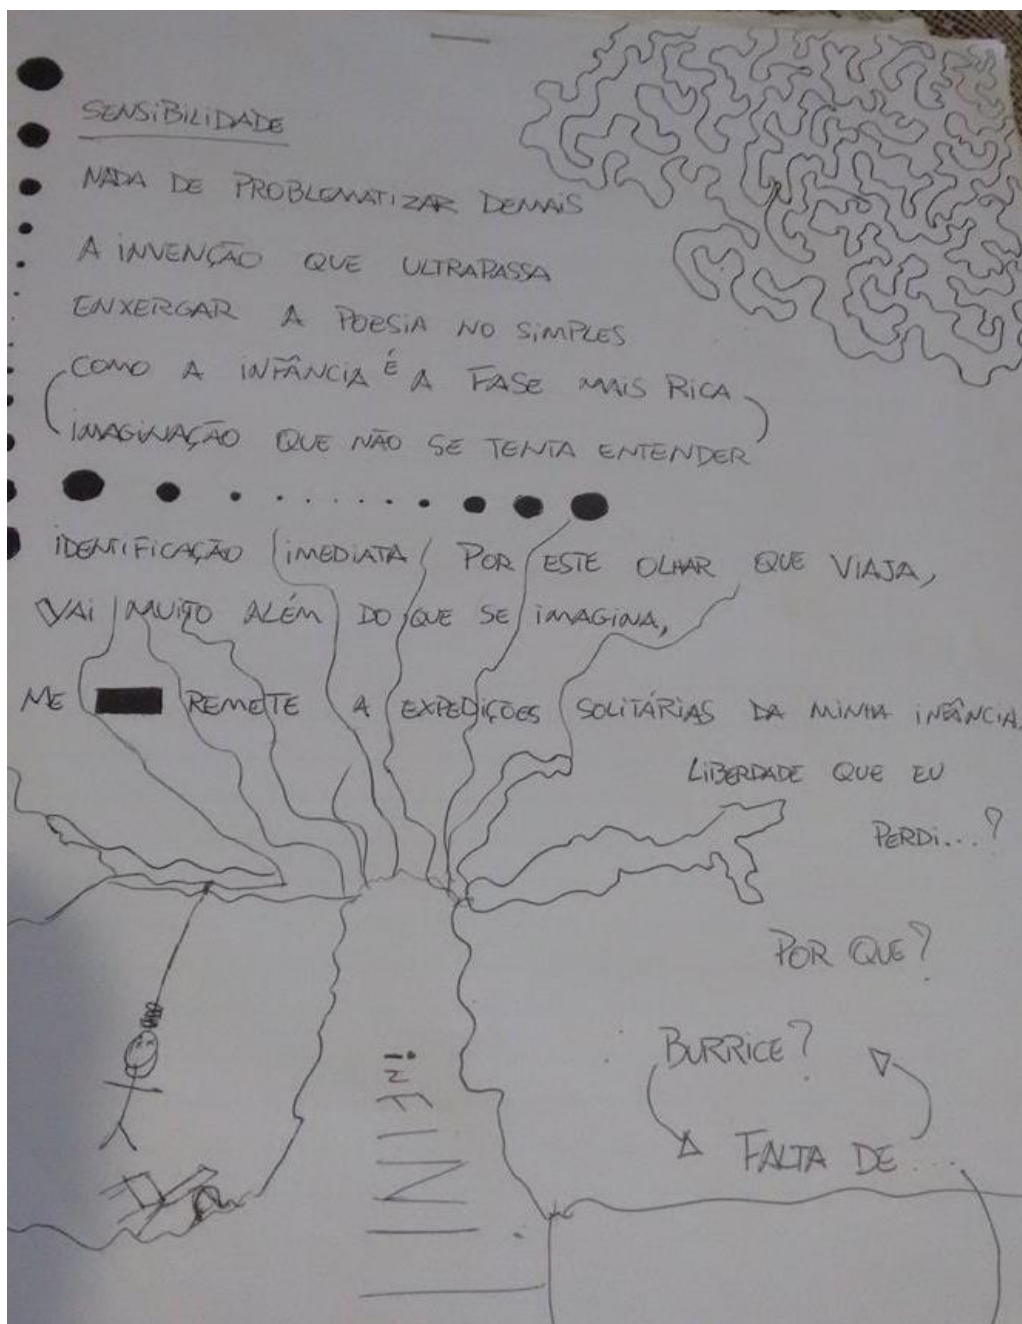 SENSIBILIDADE
NADA DE PROBLEMATIZAR DEMAIS
A INVENÇÃO QUE ULTRAPASSA
ENXERGAR A POESIA NO SIMPLES
COMO A INFÂNCIA É A FASE MAIS RICA
IMAGINAÇÃO QUE NÃO SE TENTA ENTENDER
IDENTIFICAÇÃO IMEDIATA POR ESTE OLHAR QUE VIAJA,
VAI MUITO ALÉM DO QUE SE IMAGINA,
ME REMETE A EXPEDIÇÕES SOLITÁRIAS DA MINHA INFÂNCIA.
LIBERDADE QUE EU
PERDI...?
POR QUE?
BURRICE?
FALTA DE...
INFINI